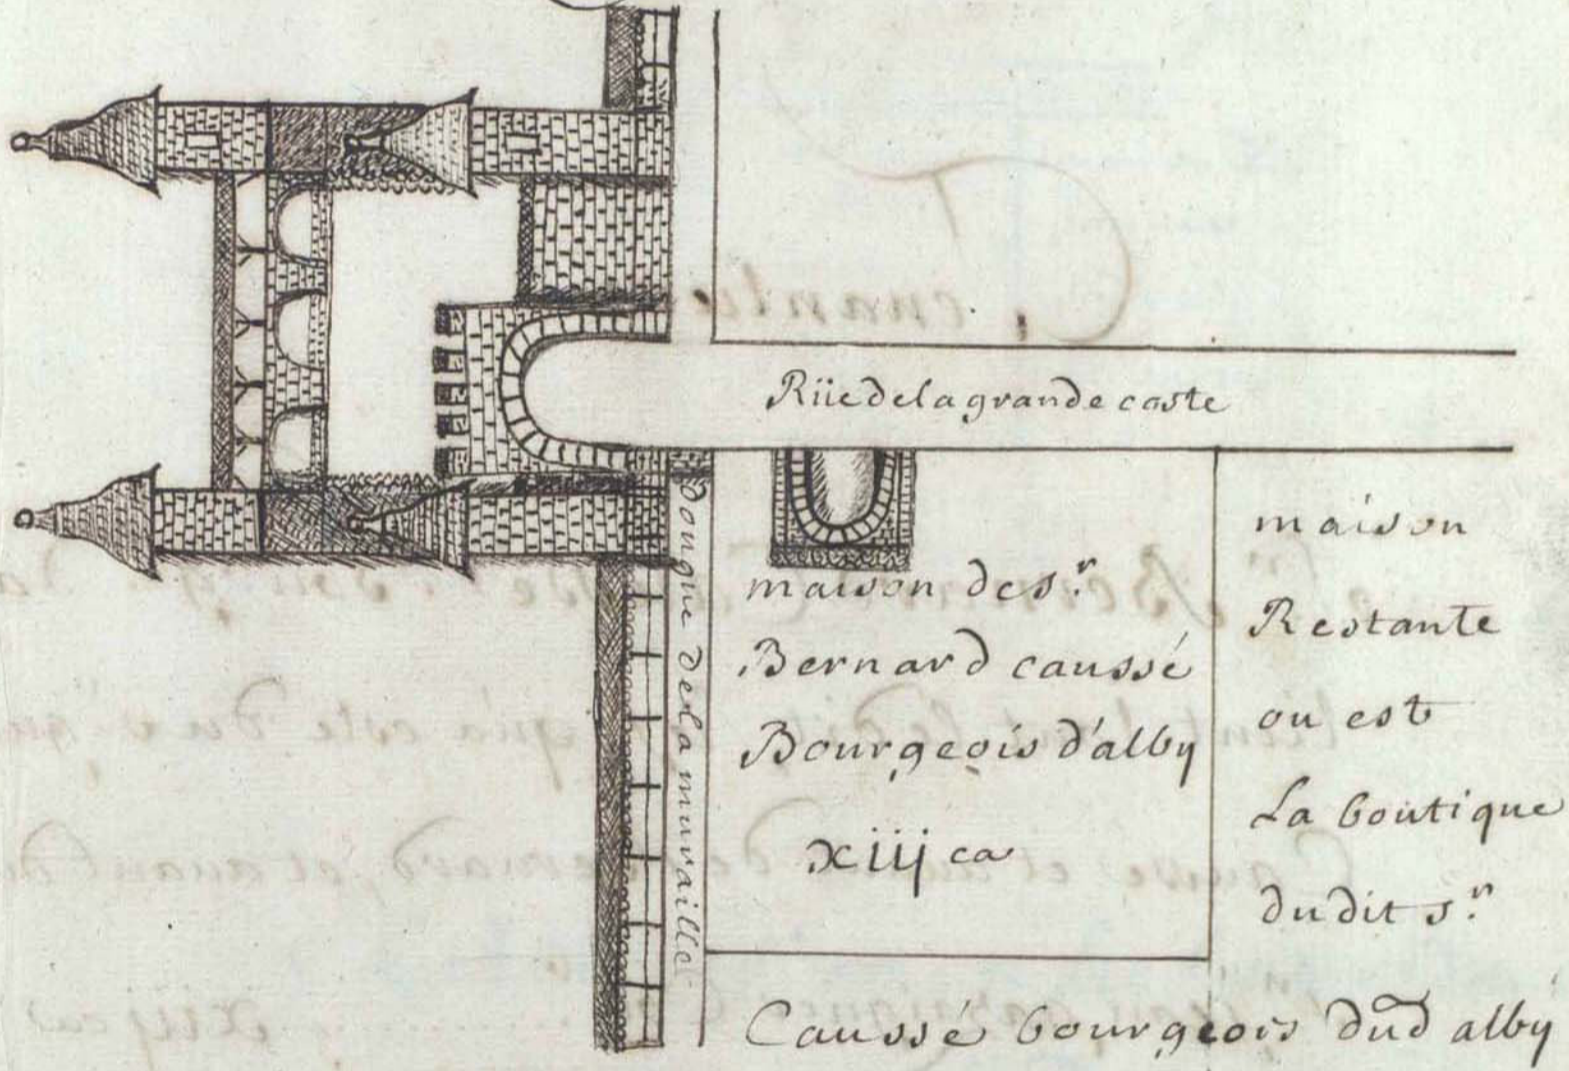 Rüe de la grande coste
dougue de la muraille
maison de s.r
Bernard caussé
Bourgeois d'alby
xiij ca
maison
Restante
ou est
La boutique
du dit s.r
Caussé bourgeois dud alby